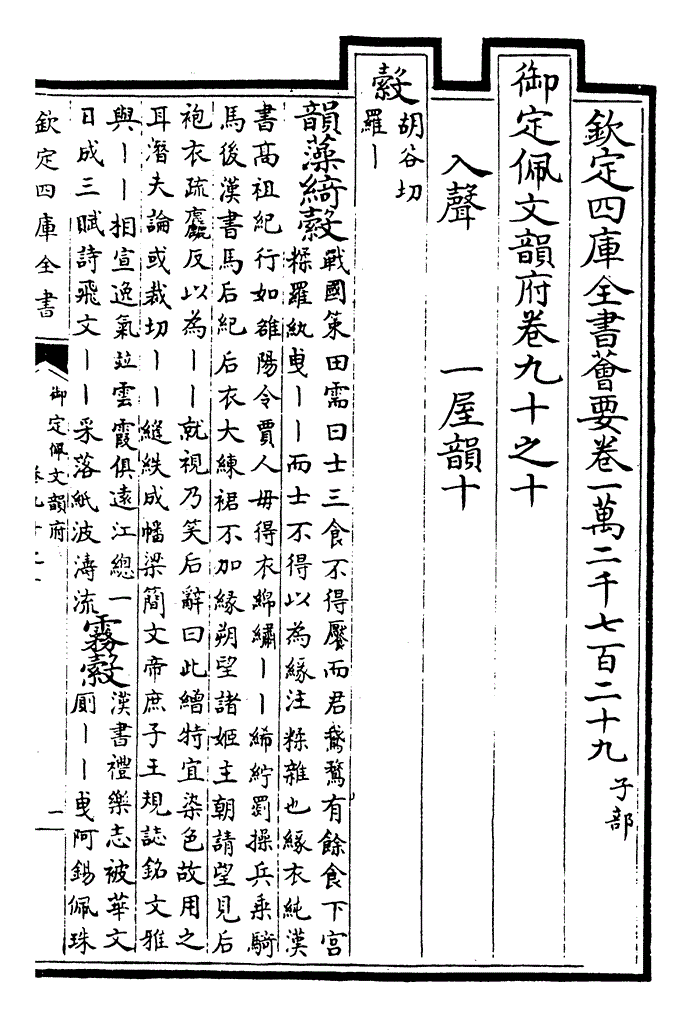 欽定四庫全書薈要卷一萬二千七百二十九 子部
御定佩文韻府卷九十之十
入聲 一屋韻十
縠
胡谷切
羅丨
韻藻綺縠
戰國策田需曰士三食不得饜而君鵞鶩有餘食下宮
糅羅紈曳丨丨而士不得以為緣注糅雜也緣衣純漢
書高祖紀行如雒陽令賈人毋得衣錦繡丨丨絺紵罽操兵乗騎
馬後漢書馬后紀后衣大練裙不加緣朔望諸姬主朝請望見后
袍衣疏麤反以為丨丨就視乃笑后辭曰此繒特宜染色故用之
耳潛夫論或裁切丨丨縫紩成幡梁簡文帝庶子王規誌銘文雅
與丨丨相宣逸氣竝雲霞俱遠江總一
日成三賦詩飛文丨丨采落紙波濤流
霧縠
漢書禮樂志被華文
厠丨丨曳阿錫佩珠
欽定四庫全書
御定佩文韻府
一